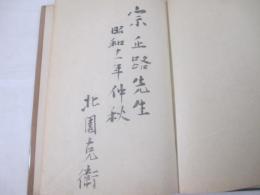 宗正路先生
昭和十一年仲秋
北園克衛